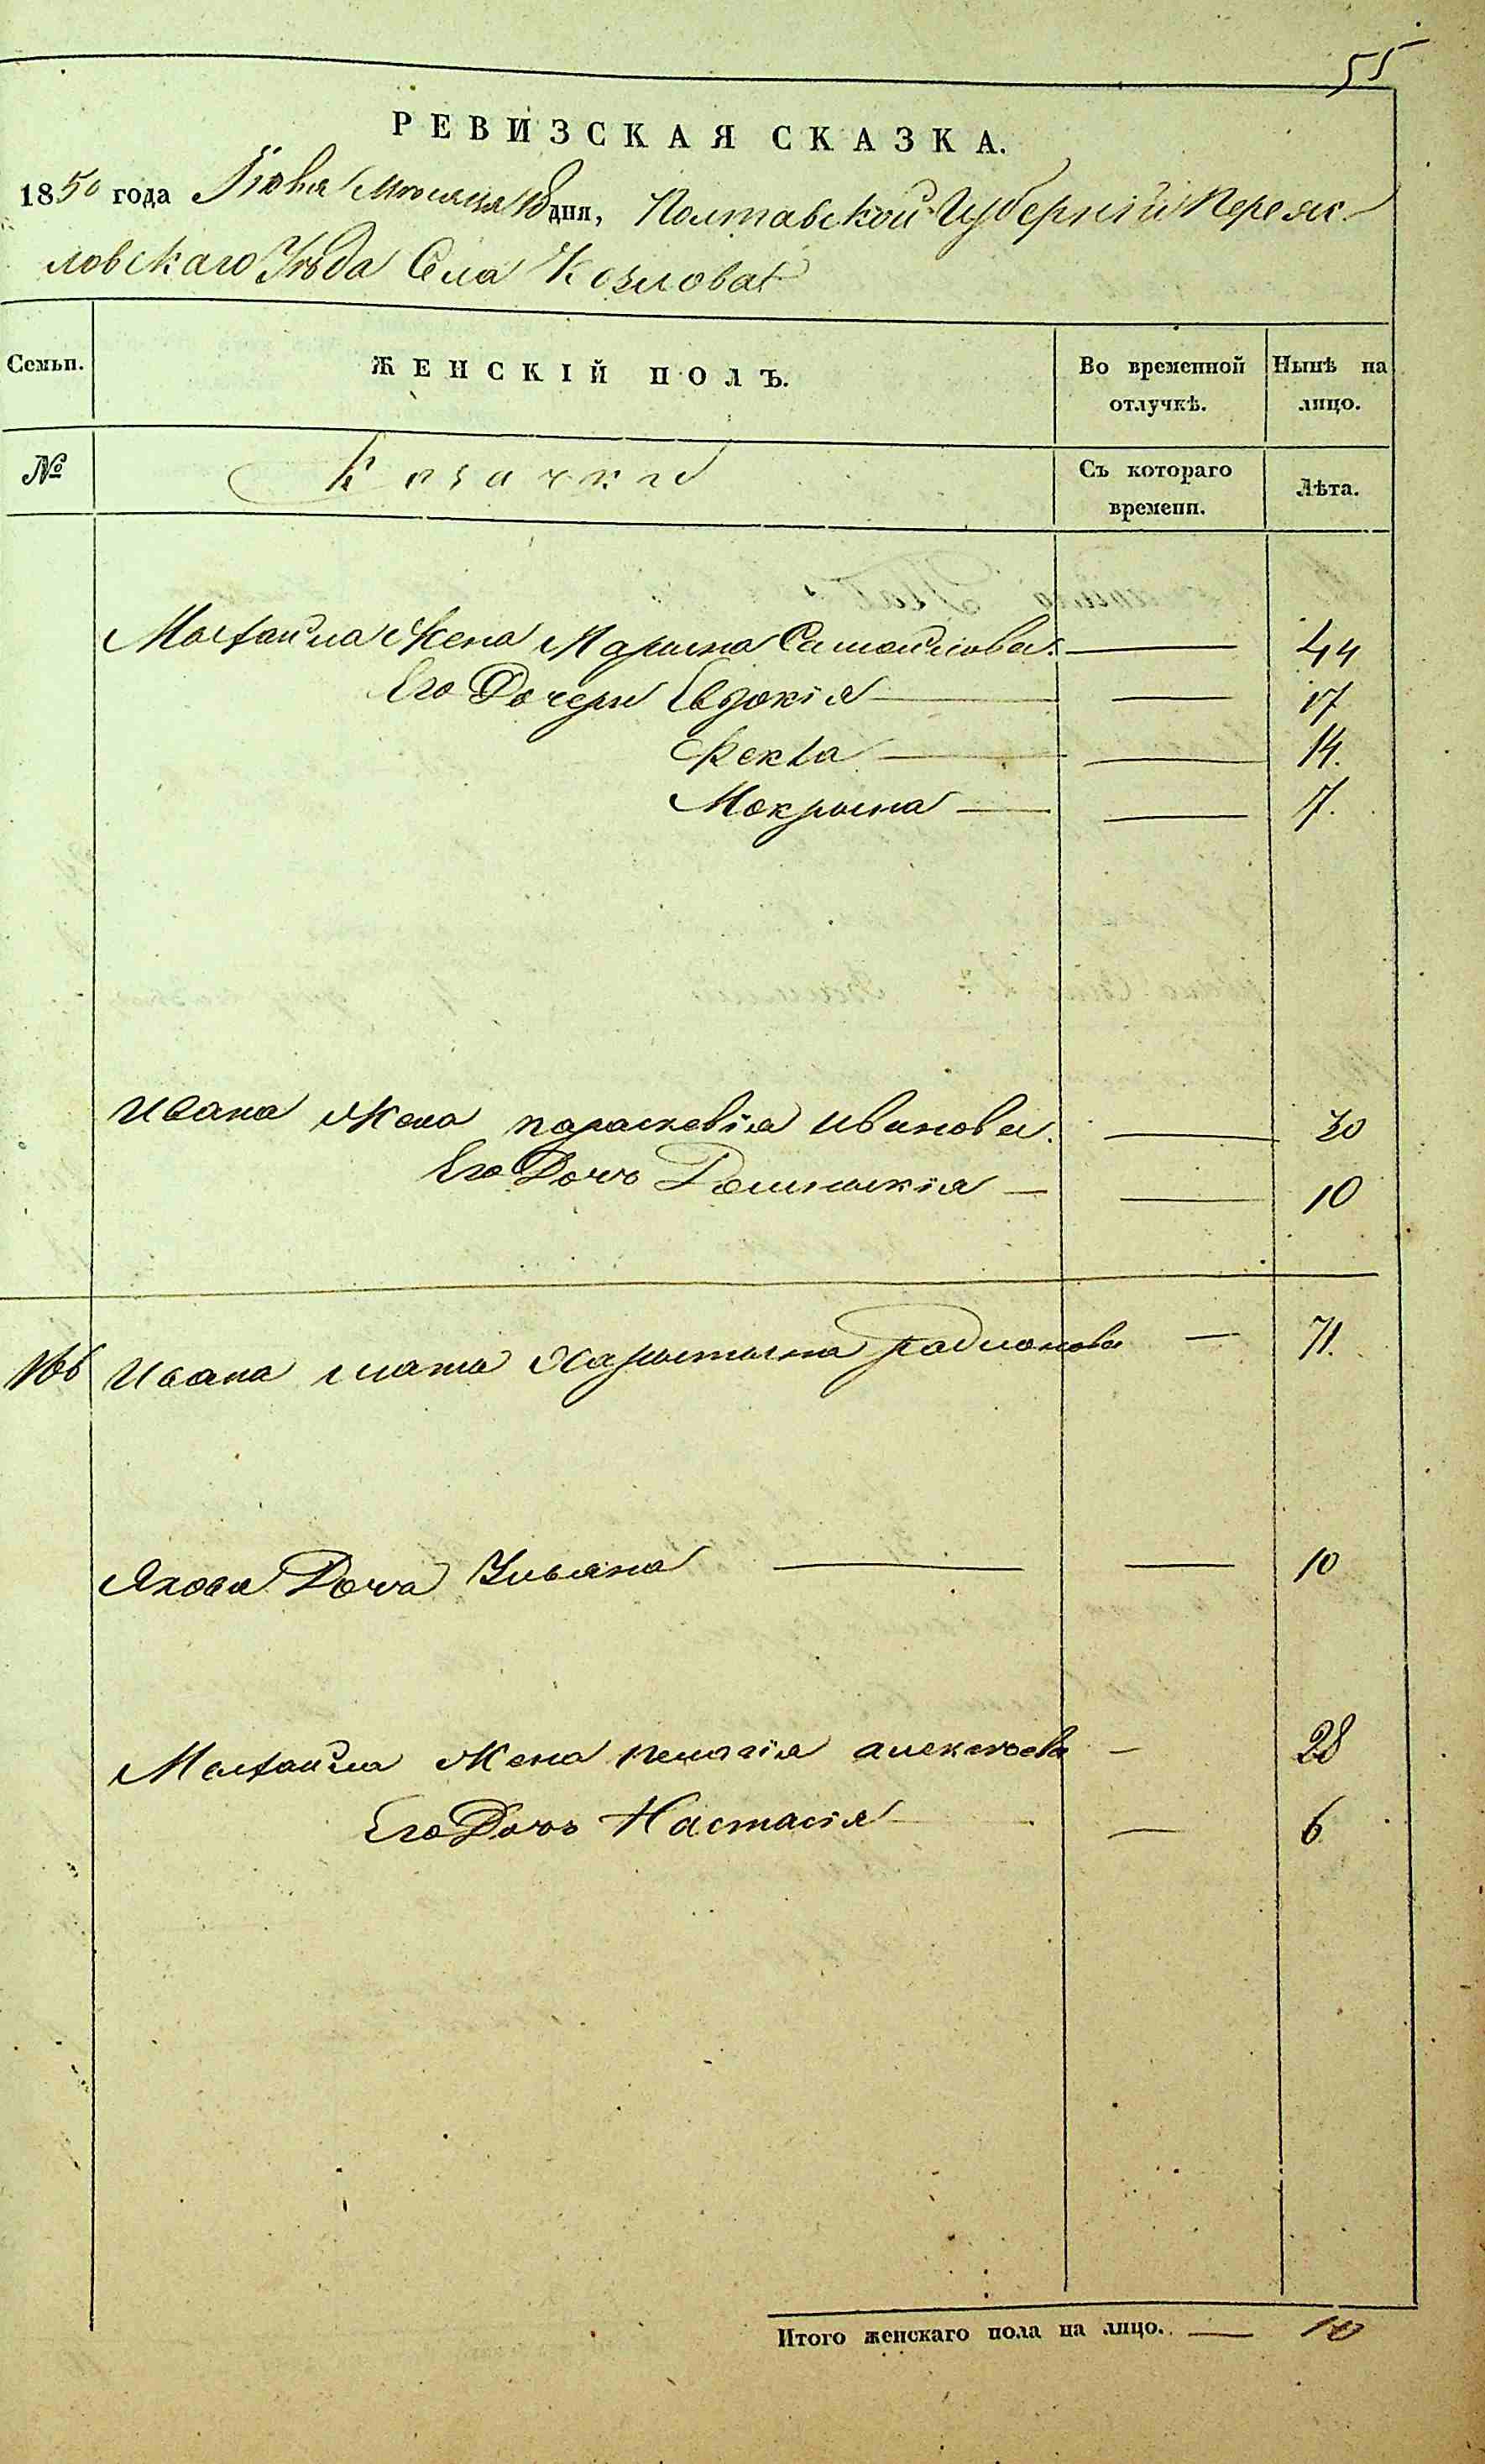 55
РЕВИЗСКАЯ СКАЗКА.
1850 года Іюня Мѣсяца 10 дня, Полтавской Губерніи Переяс-
ловскаго Уѣзда Села Козловат
Семьи. ЖЕНСКІЙ ПОЛЪ. Во временной отлучкѣ. Нынѣ на лицо.
№ Козачки Съ котораго времени. Лѣта.
Михайла Жена Марина Самойлова. — 44
Его Дочери Евдокія — — 17
Фекла — — 14.
Мокрина — — 7.
Ивана Жена параскевія иванова. — 30
Его Дочь Домникія — — 10
166 Ивана мать Харитина радионова — 71.
Якова Дочь Ульяна — — 10
Михайла Жена пелагія алексѣева — 28
Его Дочь Настасія — — 6
Итого женскаго пола на лицо. — 10